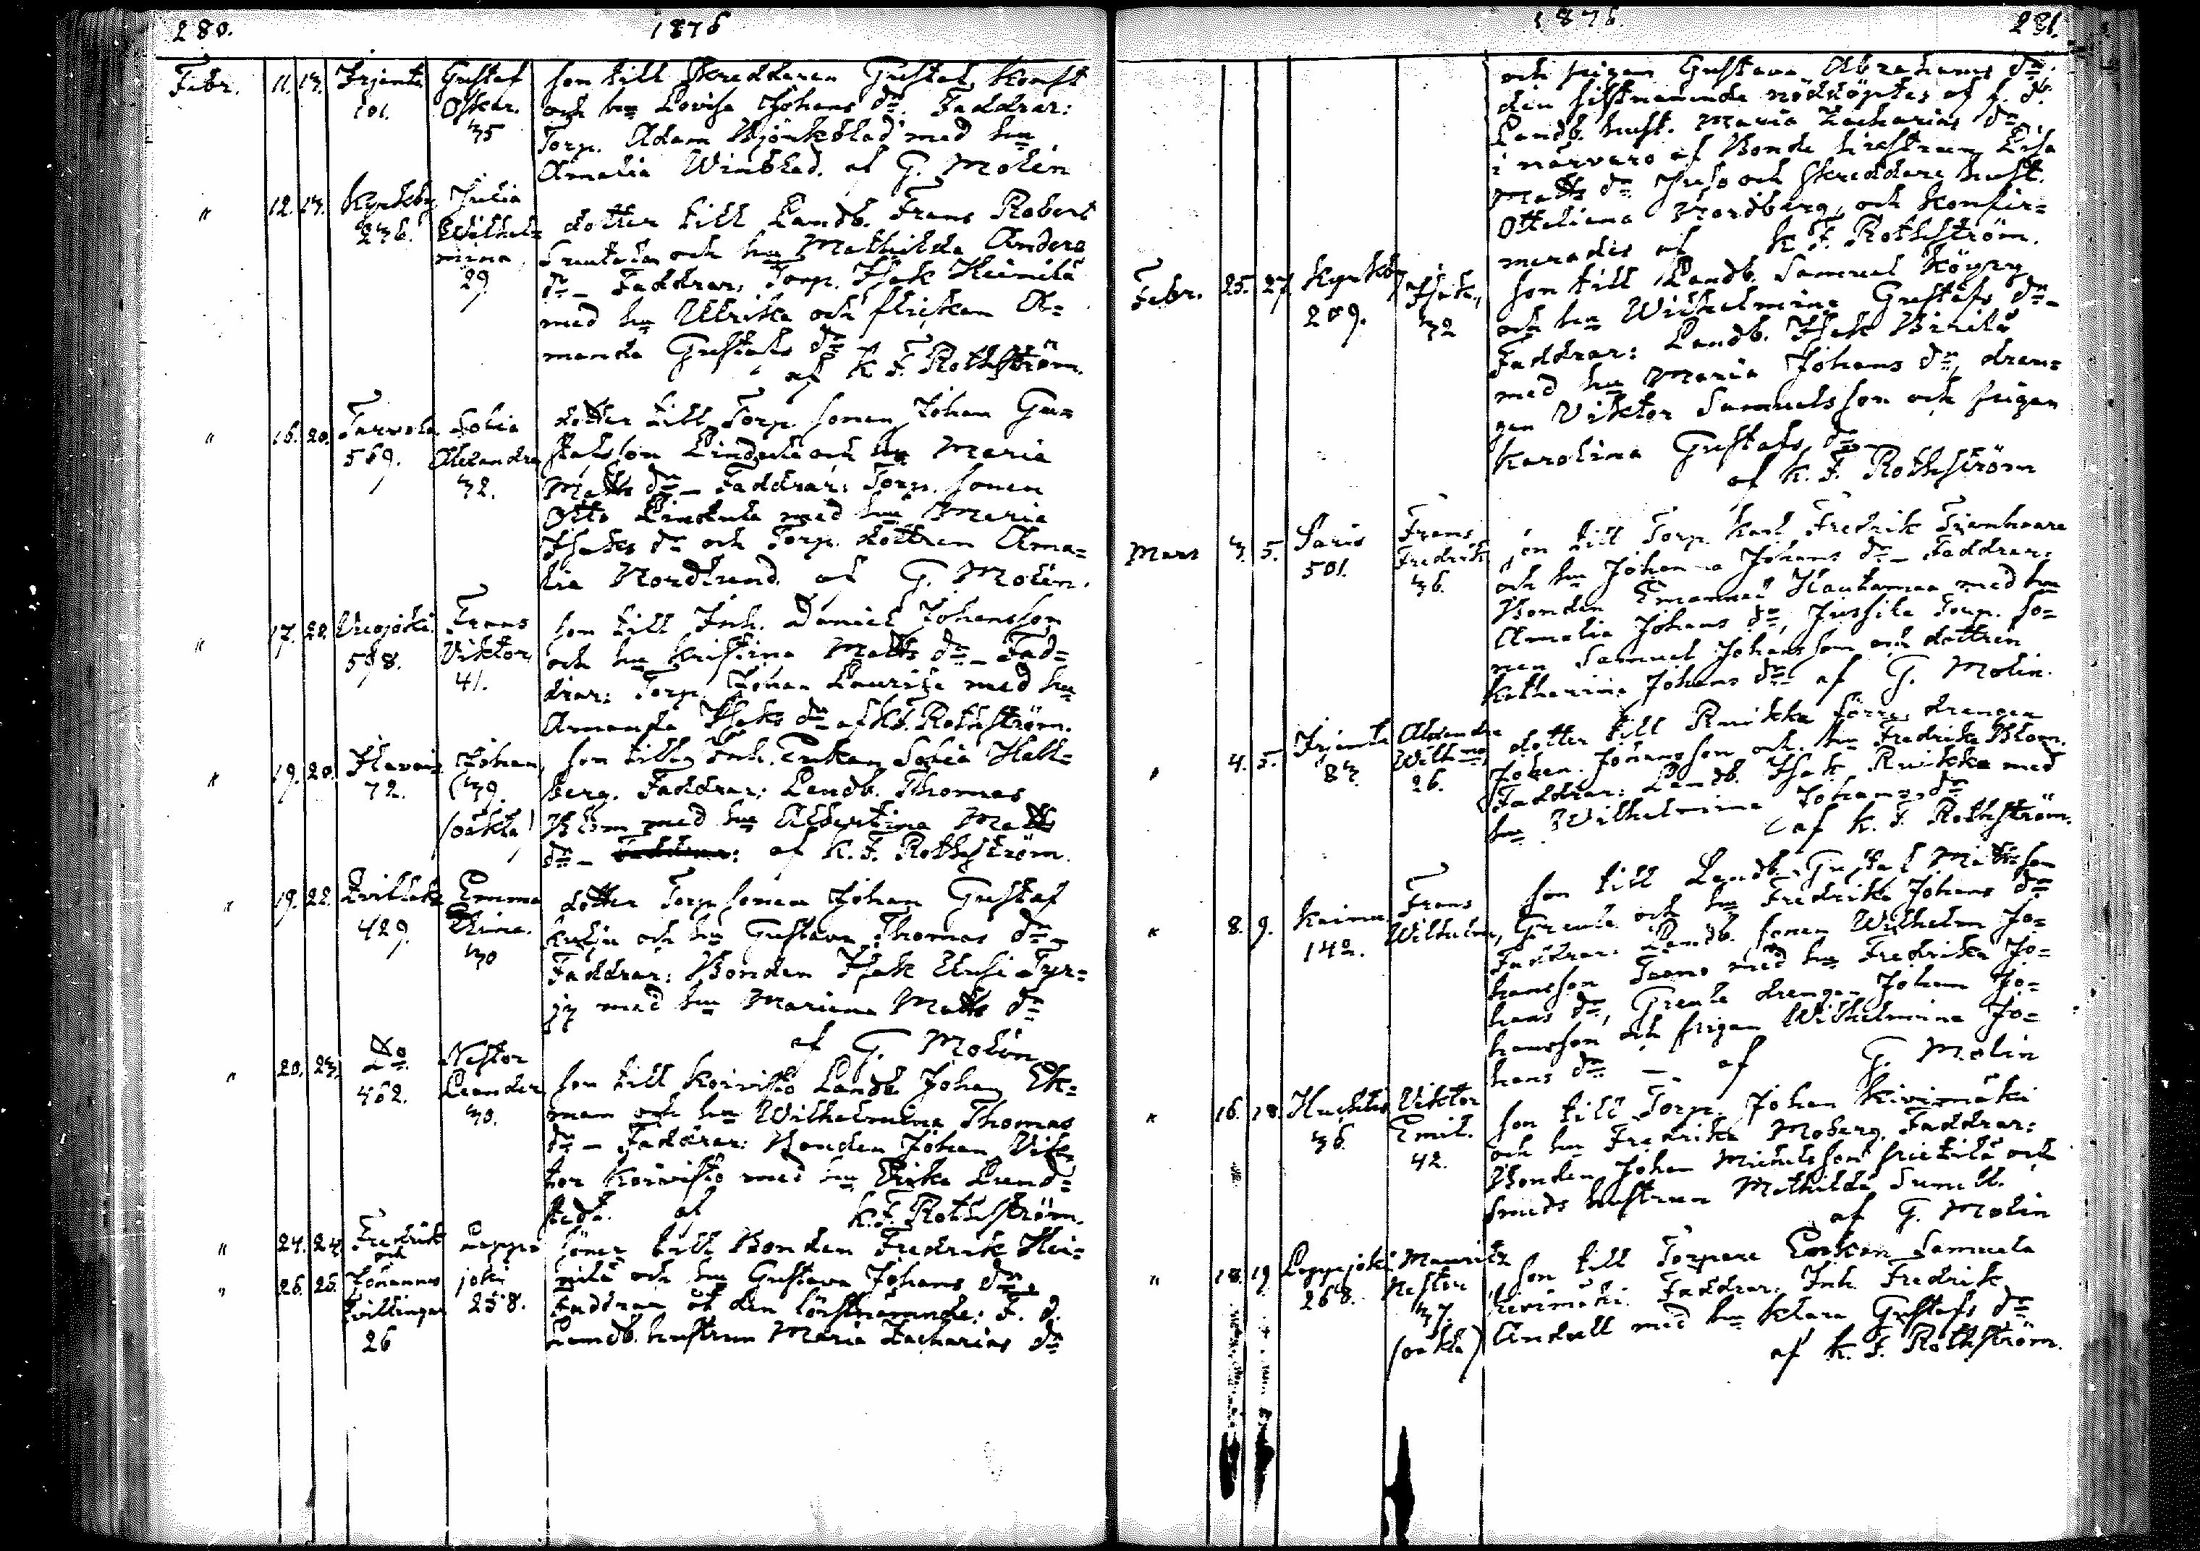 280. 1876
Febr. 11. 13. Irjanta 101. Gustaf Oskar. 35
son till Skreddaren Gustaf Konst
och hu Lovisa Johans dr. Faddrar:
Torp. Adam Björkblad med hu
Amalia Winblad. af G. Molin
" 12. 13. Kyrkby 236. Julia Wilhelmina, 29
dotter till Landb. Frans Robert
och hu Mathilda Anders
dr – Faddrar: Torp. Isak Heinilä
med hu Ulrika och flickan A=
manda Gustafs dr
af K. F. Rothström.
" 16. 20. Tarvola 569. Sofia Alexandra 32.
dotter till Torp. sonen Johan Gu=
stafsson Lindqvist och hu Maria
Matts dr – Faddrar: Torp. sonen
Otto med hu Maria
Isaks dr och Torp. dottren Ama=
lia Nordlund. af G. Molin.
" 17. 20. 598. Frans Viktor, 41.
son till Inh. Daniel Johansson
och hu Kristina Matts dr – Fad=
drar: Torp. Johan Laurila med hu
Amanda Isaks dr af K. F. Rothström.
" 19. 20. 72. Johan, 39. (oäkta)
son till Inh. Enkan Sofia Hell=
berg. Faddrar: Landb. Thomas
Blom med hu Albertina Matts
dr – af K. F. Rothström.
" 19. 22. 429. Emma 30
dotter Torp sonen Johan Gustaf
och hu Gustava Thomas dr –
Faddrar: Bonden Isak Uusi Tyr=
jy med hu Mariana Matts dr
af G. Molin
" 20. 23. Do. 462. Nestor Leander 30.
son till Koivisto Landb Johan Ek=
man och hu Wilhelmina Thomas
dr – Faddrar: Bonden Johan Vik=
tor Koivisto med hu Erika Lund=
stedt. af K. F. Rothström.
" 24. 24. Fredrik och Leppä=
söner till Bonden Fredrik Hei=
" 26. 26. Johannes joki
nilä och hu Gustava Johans dr
tvillingar 258.
Faddrar åt den förstnämnde: F. d.
26
Landb. hustrun Maria Zacharias dr
1876 281.
och pigan Gustava Abrahams dr,
den sistnämnde nöddöptes af f. d.
Landb. hust. Maria Zacharias dr
i närvaro af Bonde hustrun Lisa
Matts dr och Skreddare hust.
Ottiliana Nordberg, och konfir=
merades af K. F. Rothström.
Febr. 25. 27. Kyrkby 209. Isak, 32
son till Landb. Samuel Köpry
och hu Wilhelmina Gustafs dr –
Faddrar: Landb. Isak
med hu Maria Johans dr, dren=
gen Viktor Samuelsson och pigan
Karolina Gustafs dr
af K. F. Rothström
Mars 3. 5. Saris 501. Frans Fredrik 36.
son till Torp. Karl Fredrik
och hu Johanna Johans dr – Faddrar:
Bonden Emanuel Hautamaa med hu
Amalia Johans dr, Jussila Torp. so=
nen Samuel Johansson och dottren
Katharina Johans dr af G. Molin.
" 4. 5. Irjanta 83. Alexandra Wilhna, 26.
dotter till Ruikka förre drengen
Johan Johansson och hu Fredrika Blom.
Faddrar: Landb. Isak Ruikka med
hu Wilhelmina Johans dr
af K. F. Rothström.
" 8. 9. Kaima. 142. Frans Wilhelm,
son till Landb. Gustaf Mattsson
Greula och hu Fredrika Johans dr
Faddrar: Landb. sonen Wilhelm Jo=
hansson Tuomo med hu Fredrika Jo=
hans dr, Greula drengen Johan Jo=
hansson och pigan Wilhelmina Jo=
hans dr – af G. Molin
" 16. 18. Huhtis 36. Viktor Emil. 42.
son till Torp. Johan Kivimäki
och hu Fredrika Moberg. Faddrar:
Bonden Johan Michelsson och
Smeds hustrun Mathilda Sumell.
af G. Molin
" 18. 19. Leppäjoki 268. Mauritz Nestor 37. (oäkta)
son till Torpare Enkan Samuela
Kivimäki. Faddrar: Inh. Fredrik
Andell med hu Klara Gustafs dr
af K. F. Rothström.